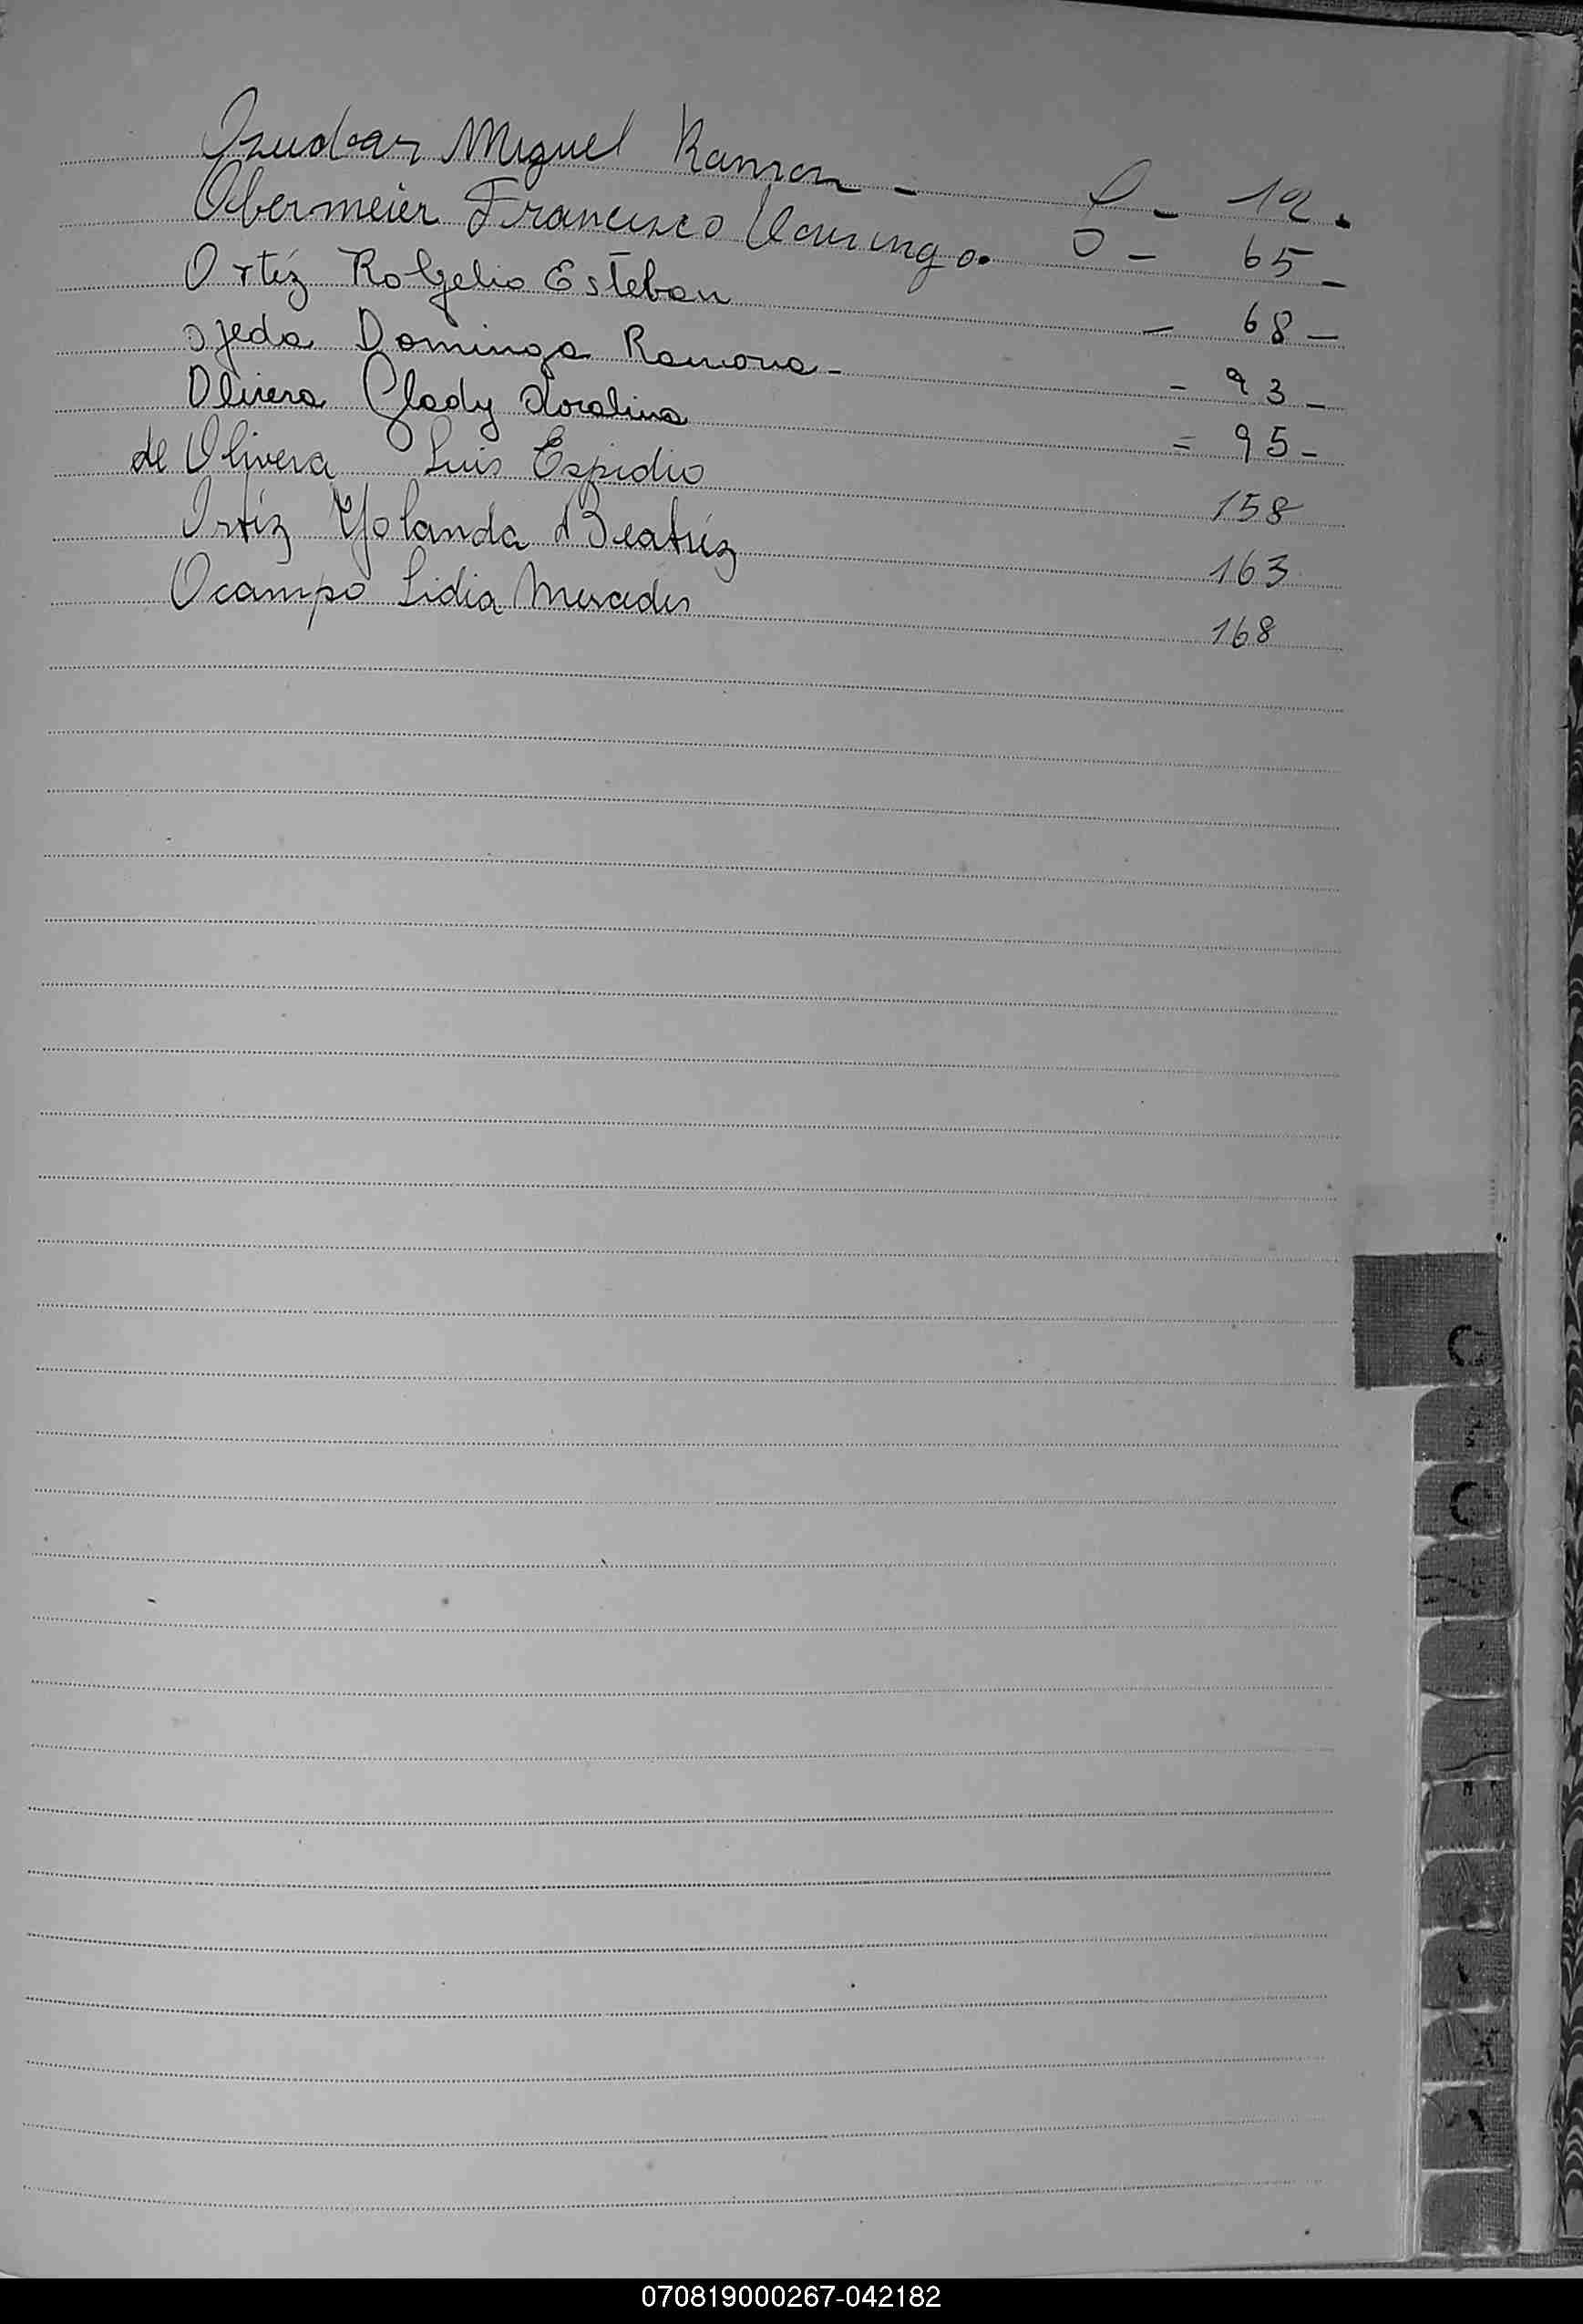 Osudar Miguel Ramon - O - 12.
Obermeier Francisco Domingo. O - 65 -
Ortíz Rogelio Esteban - 68 -
Ojeda Dominga Ramona - - 93 -
Olivera Glady Doralina = 95 -
de Olivera Luis Espidio 158
Ortíz Yolanda Beatríz 163
Ocampo Lidia Mercedes 168
070819000267-042182